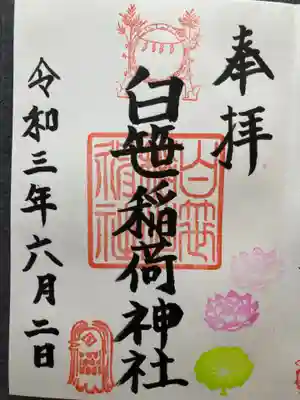 奉拝
白笹稲荷神社
令和三年六月二日